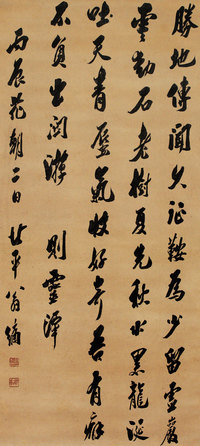 勝地傳聞久征鞍為少留
雲動石老樹夏先秋水黑龍涎
吐天青蜃氣收好奇吾有癖
不負出關游 則靈潭
丙辰花朝二日 平翁